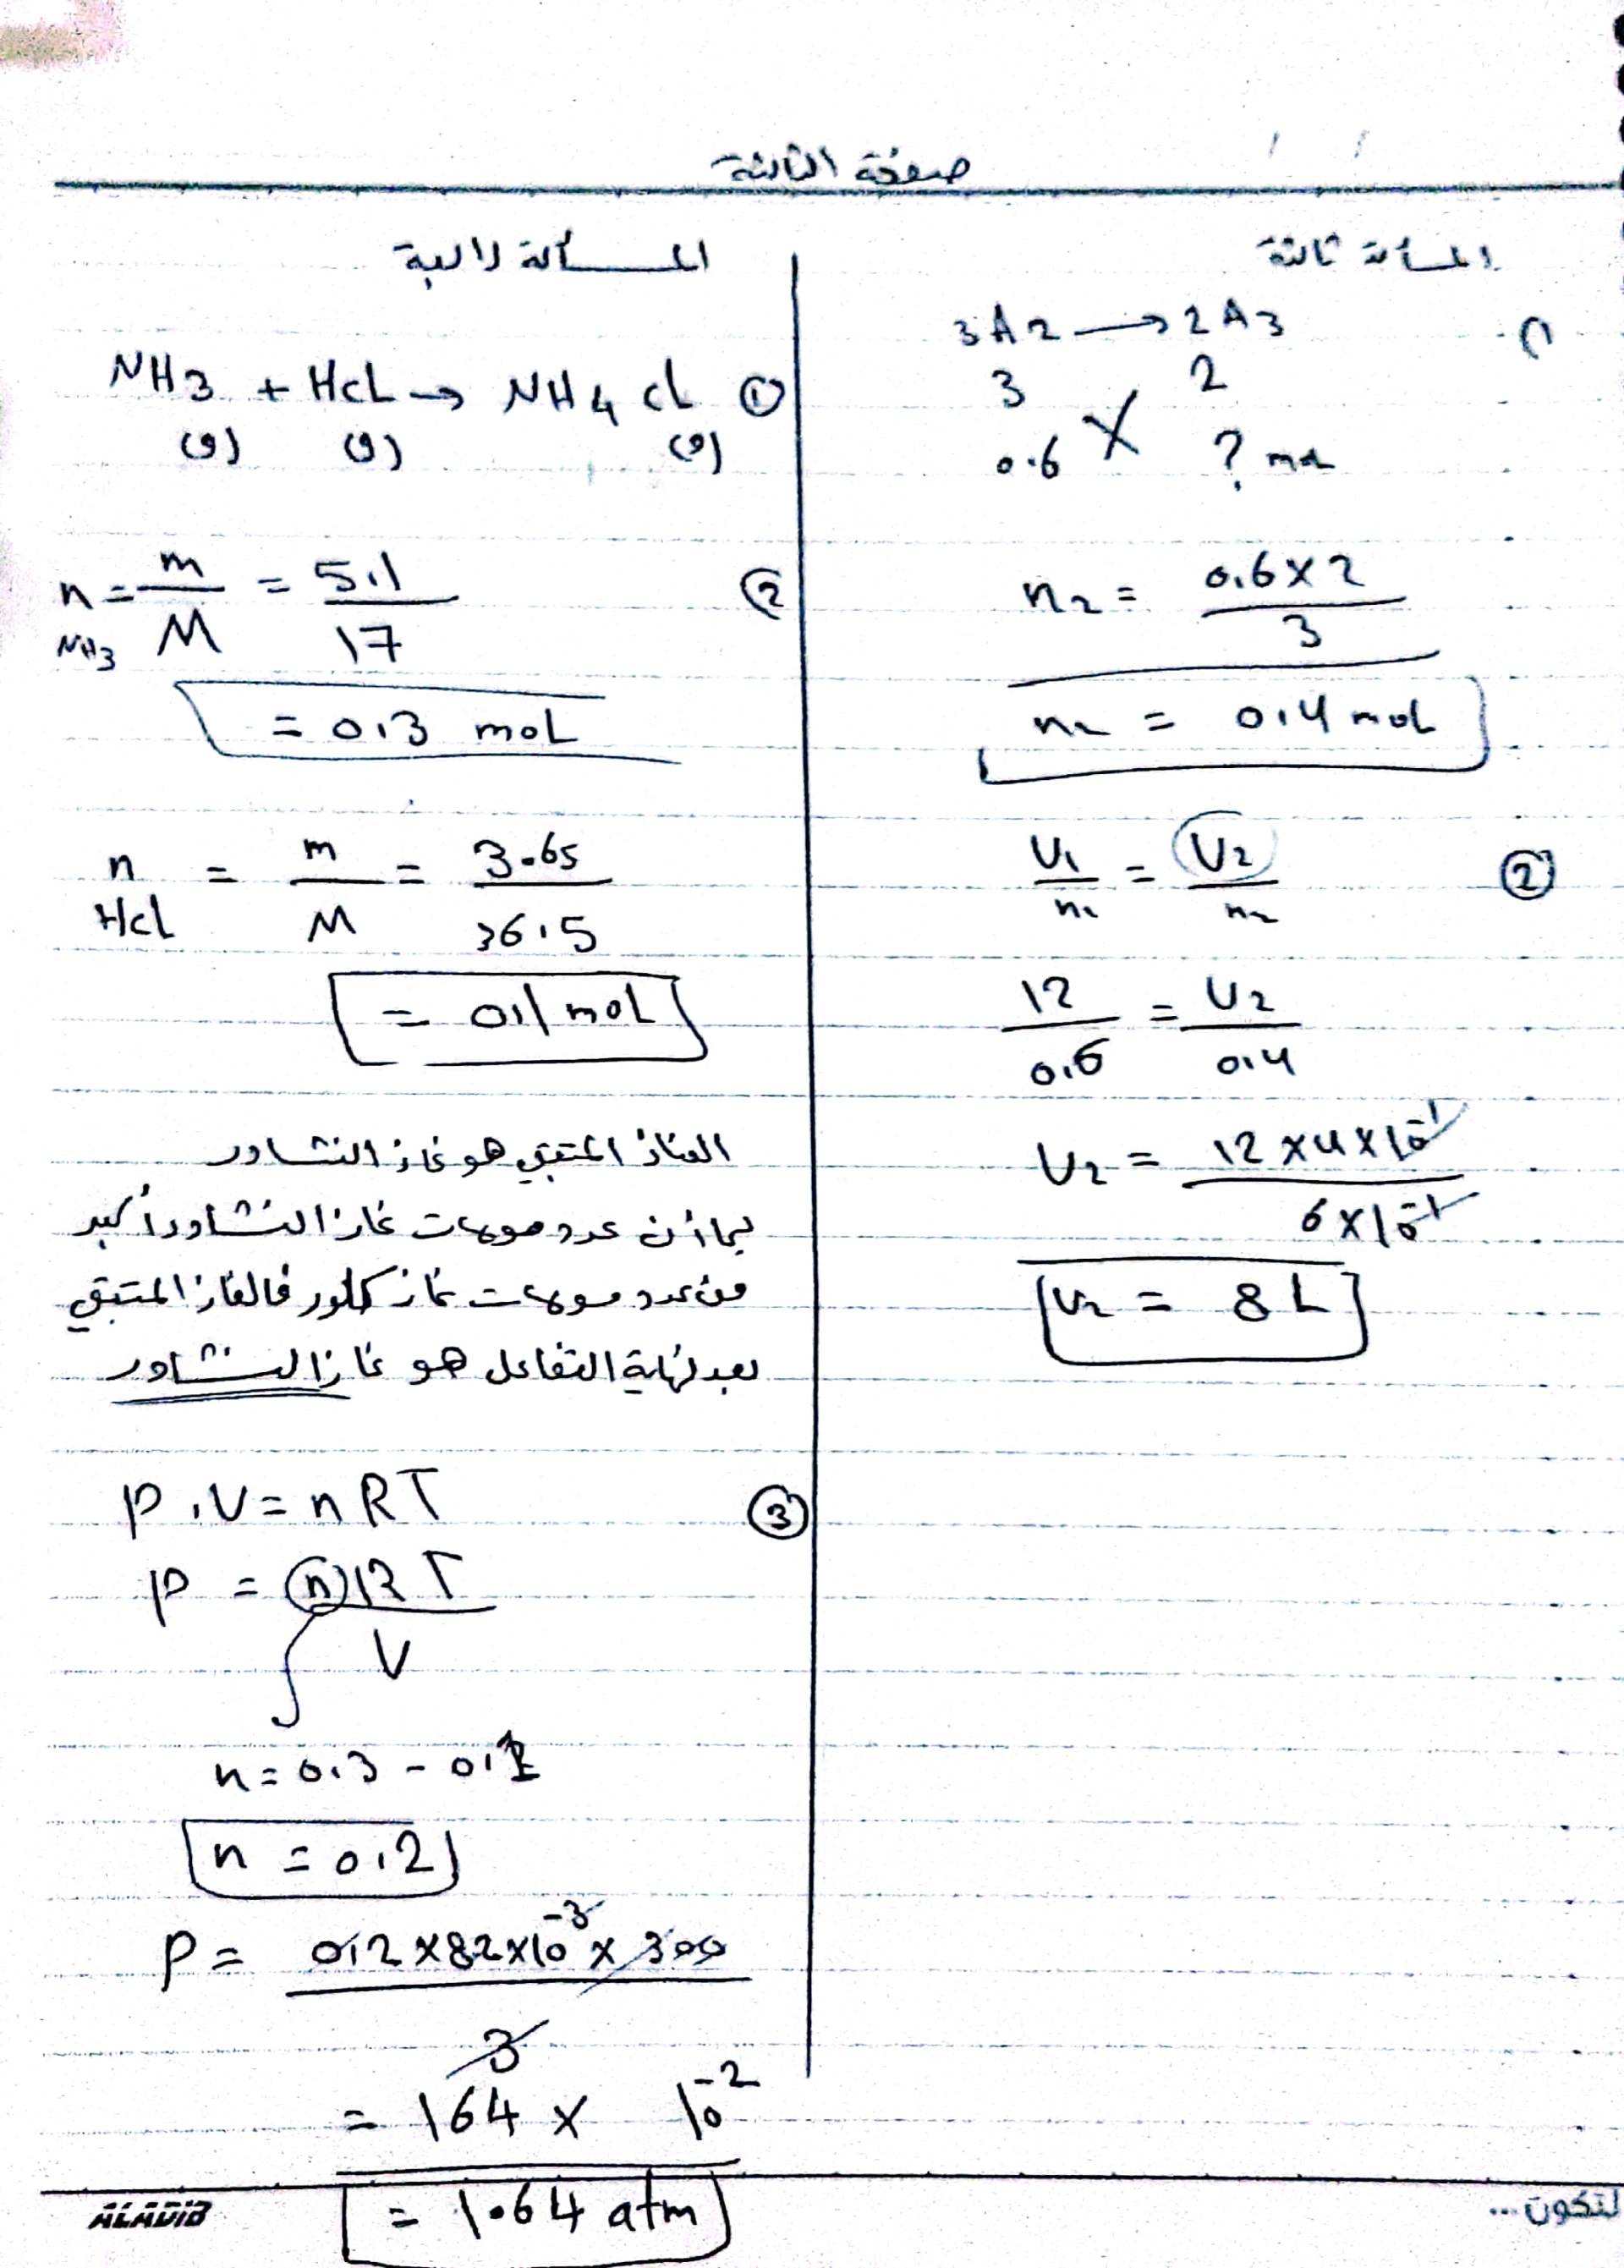 صفحة الثالثة
المسألة ثالثة
3A2 → 2A3
3 2
0.6 ? mol
n2 = 0,6×2 / 3
n2 = 0,4 mol
② V1/n1 = V2/n2
12/0,6 = V2/0,4
V2 = 12×4×10^-1 / 6×10^-1
V2 = 8 L
المسألة رابعة
① NH3 + HCL → NH4 CL
(g) (g) (g)
② n NH3 = m/M = 5,1/17
= 0,3 moL
n HCl = m/M = 3.65/36,5
= 0,1 moL
الغاز المتبقي هو غاز النشادر
بما أن عدد مولات غاز النشادر أكبر
من عدد مولات غاز كلور فالغاز المتبقي
بعد نهاية التفاعل هو غاز النشادر
③ P.V = nRT
P = nRT / V
n = 0,3 - 0,1
n = 0,2
P = 0,2×82×10^-3×300 / 3
= 164 × 10^-2
= 1.64 atm
ALADIB
لتكون ...